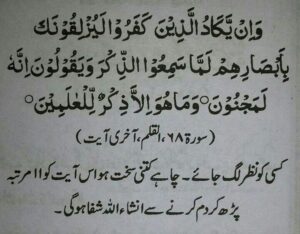 وَاِنْ يَّكَادُ الَّذِيْنَ كَفَرُوْا لَيُزْلِقُوْنَكَ
بِاَبْصَارِهِمْ لَمَّا سَمِعُوا الذِّكْرَ وَيَقُوْلُوْنَ اِنَّهٗ
لَمَجْنُوْنٌ۝ وَمَا هُوَ اِلَّا ذِكْرٌ لِّلْعٰلَمِيْنَ۝
(سورۃ ۶۸، القلم، آخری آیت)
کسی کو نظر لگ جائے۔ چاہے کتنی سخت ہو اس آیت کو ۱۱ مرتبہ
پڑھ کر دم کرنے سے انشاء اللہ شفا ہوگی۔